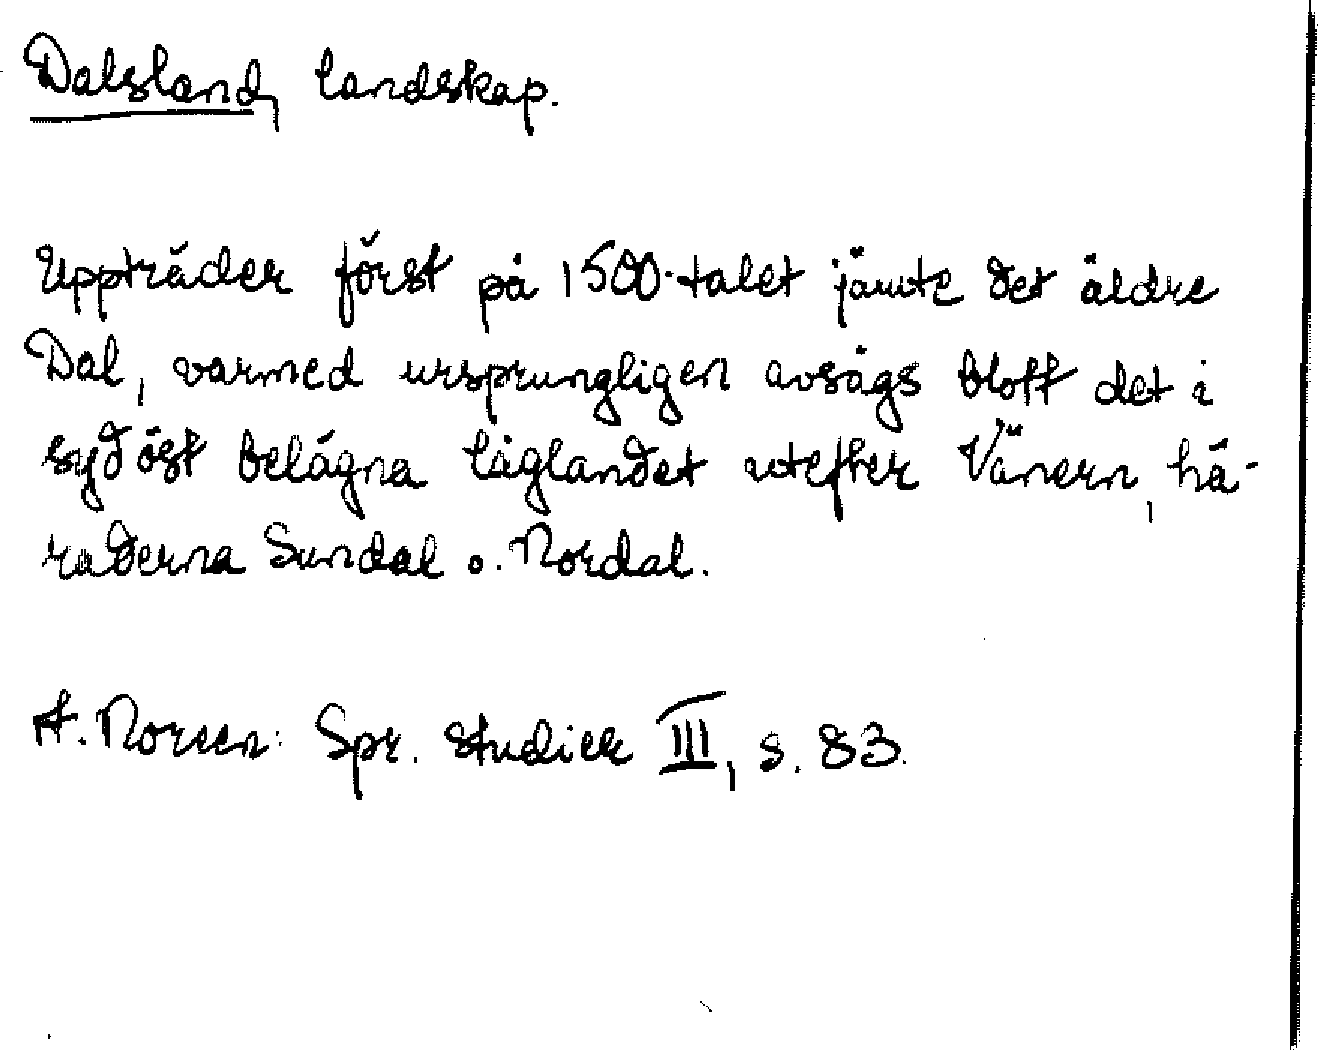 Dalsland, landskap.
Uppträder först på 1500-talet jämte det äldre
Dal, varmed ursprungligen avsågs blott det i
sydöst belägna låglandet utefter Vänern, hä-
raderna Sundal o. Nordal.
A. Noreen: Spr. studier III, s. 83.